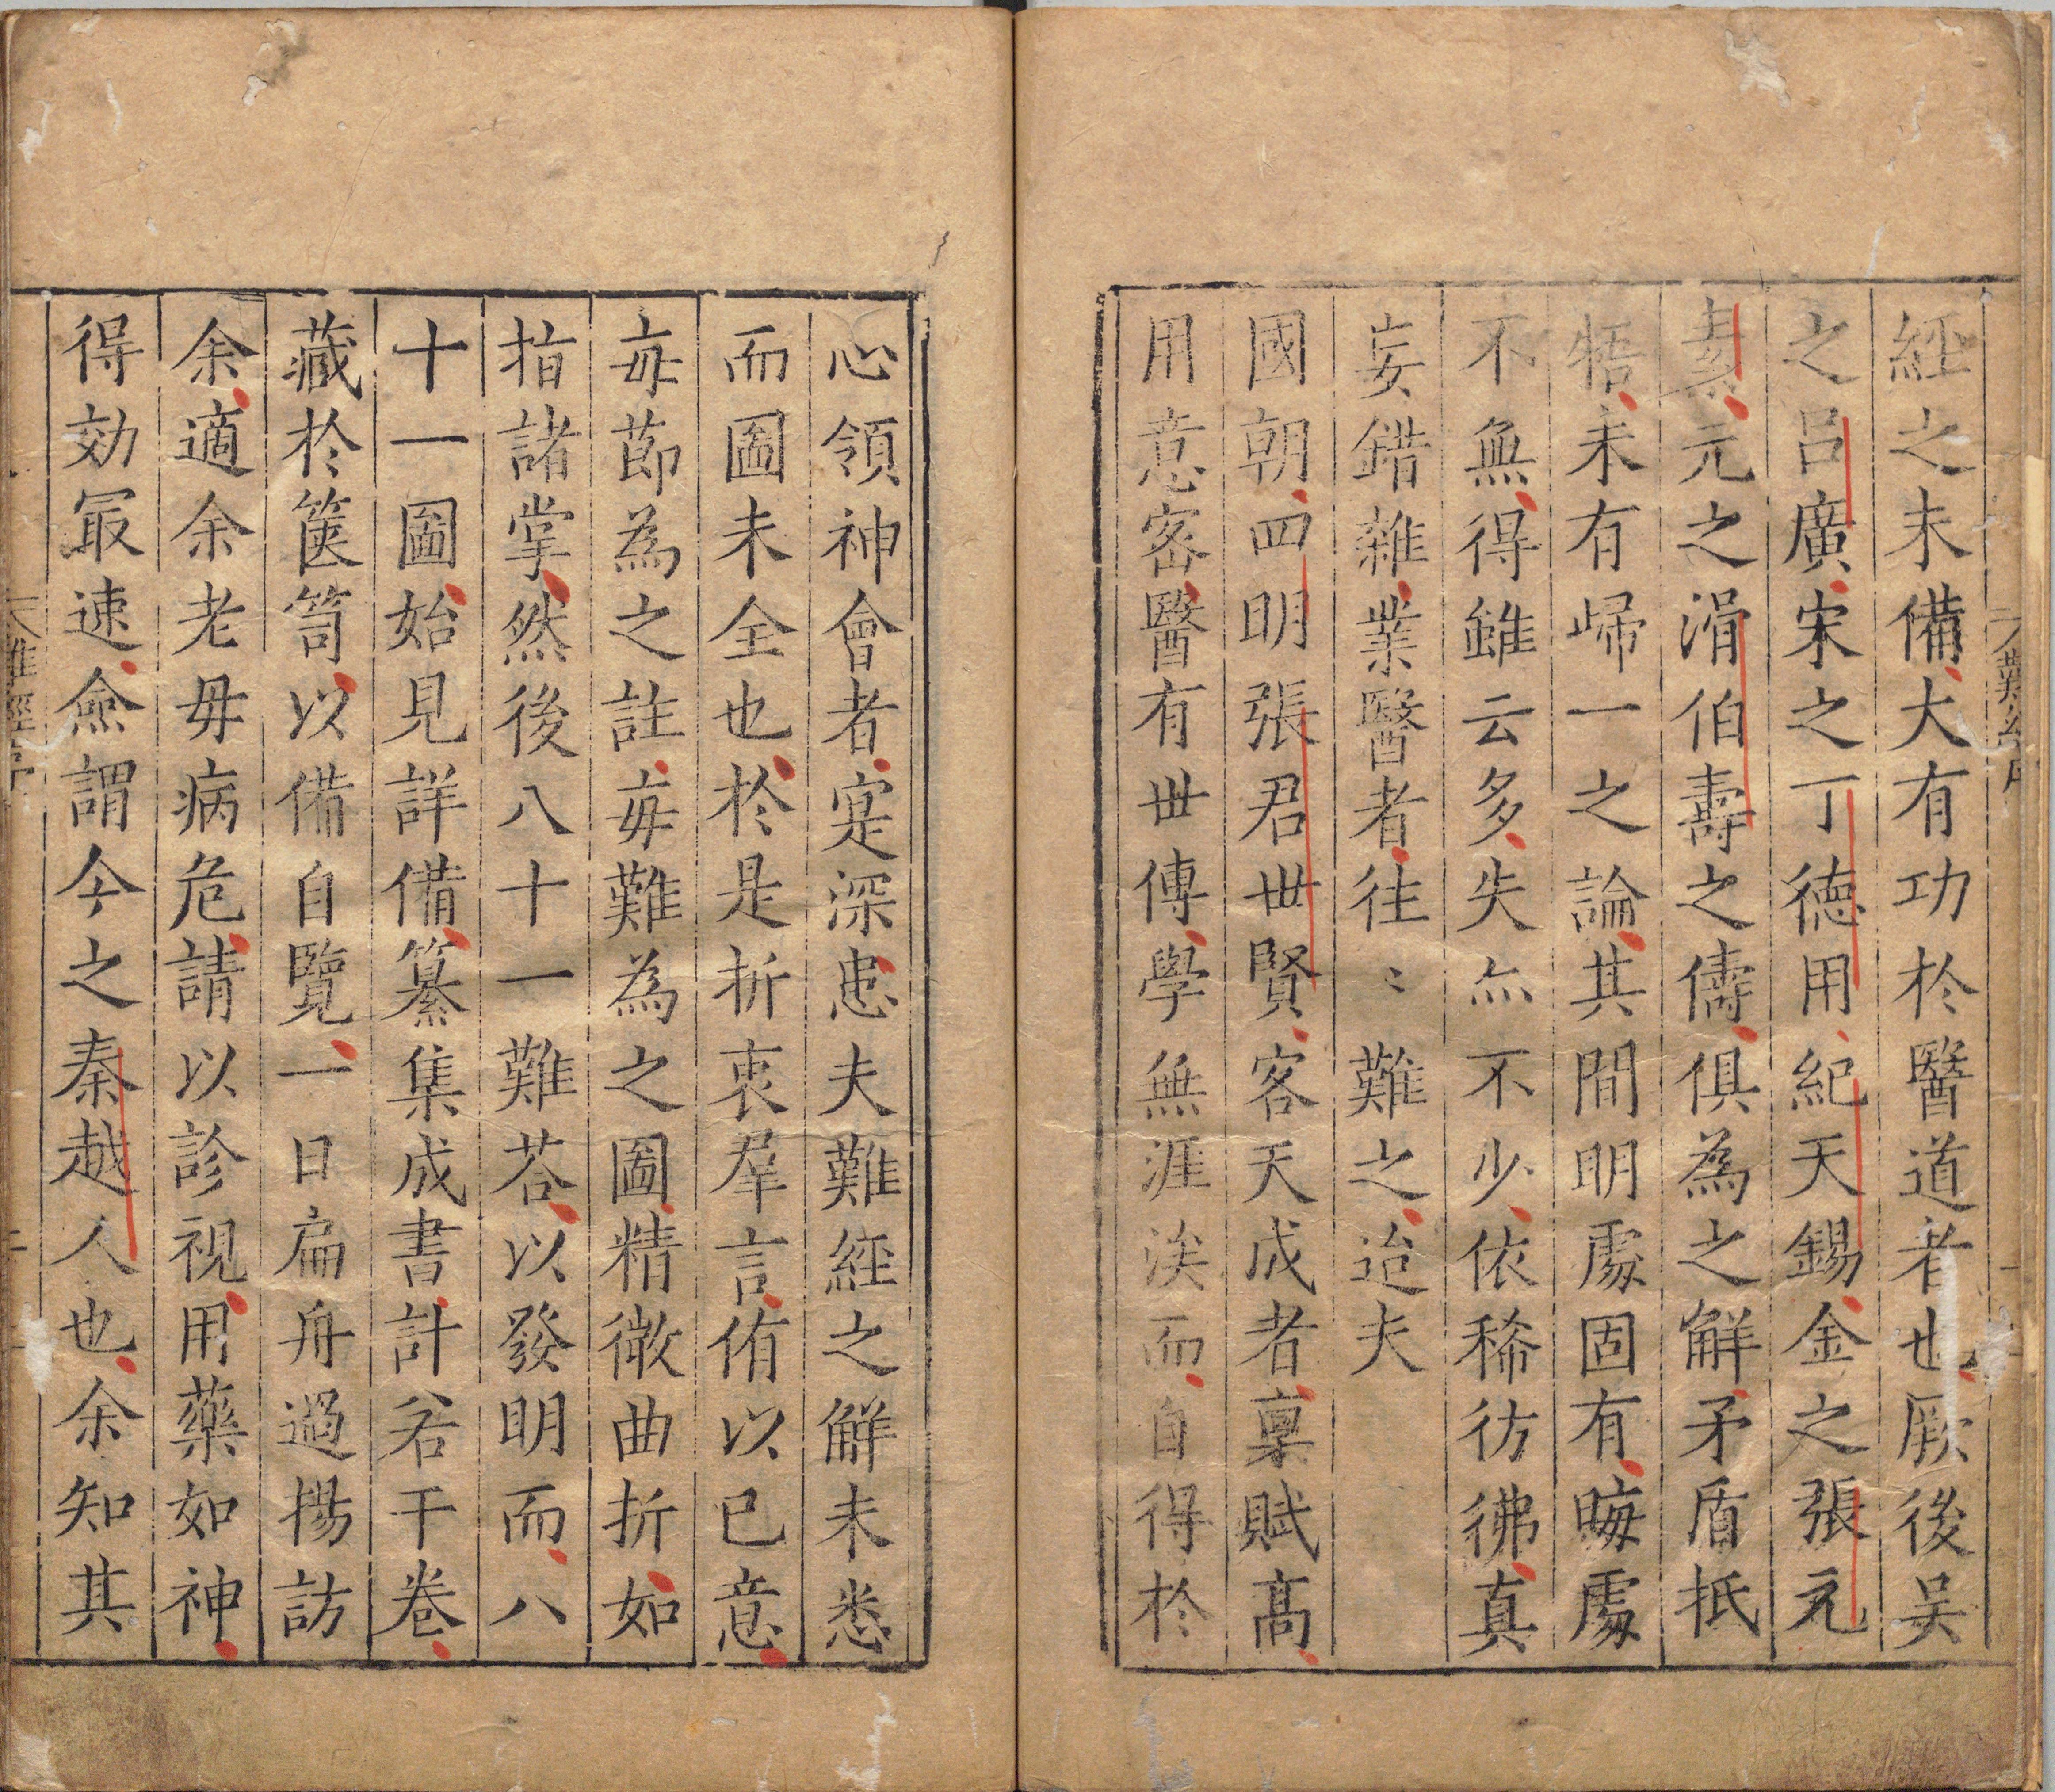 經之未備大有功於醫道者也厥後吴
之吕廣宋之丁德用紀天錫金之張元
素元之滑伯壽之儔俱為之解矛盾抵
牾未有歸一之論其間明䖏固有晦䖏
不無得雖云多失亦不少依稀彷彿真
妄錯雜業醫者徃〻難之迨夫
國朝四明張君世賢客天成者稟賦髙
用意宻醫有世傳學無涯涘而自得於
心領神會者寔深患夫難經之解未悉
而圖未全也於是折衷羣言侑以已意
毎節為之註毎難為之圖精微曲折如
指諸掌然後八十一難荅以發明而八
十一圖始見詳備纂集成書計若干卷
藏於篋笥以備自覽一日扁舟過揚訪
余適余老母病危請以診視用藥如神
得効冣速僉謂今之秦越人也余知其